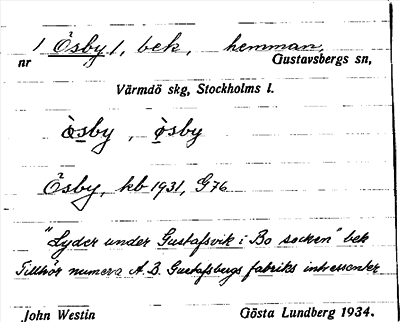 1 Ösby 1, bek, hemman,
nr Gustavsbergs sn,
Värmdö skg, Stockholms l.
òsby, òsby
Ösby, kb 1931, G76
"Lyder under Gustafsvik i Bo socken" bek
Tillhör numera A. B. Gustafsbergs fabriks intressenter
John Westin Gösta Lundberg 1934.